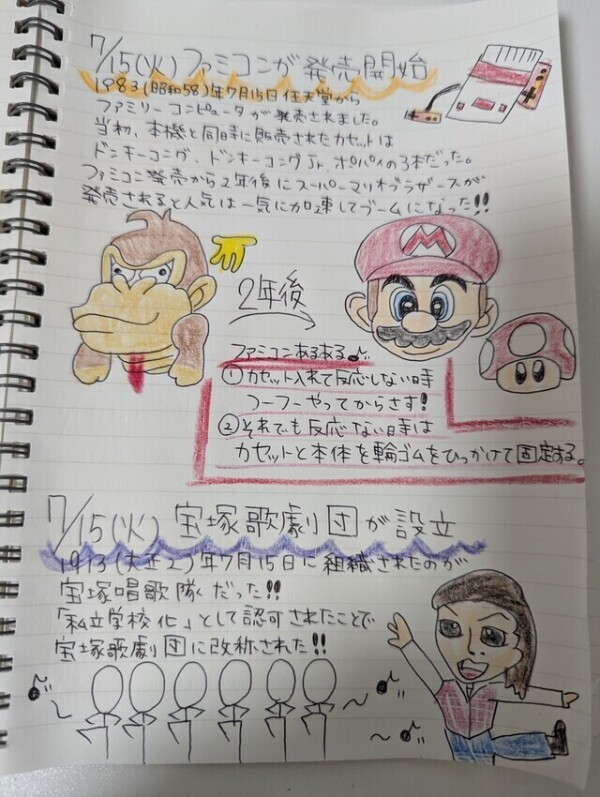 7/15(火)ファミコンが発売開始
1983(昭和58)年7月15日任天堂から
ファミリーコンピュータが発売されました。
当初、本機と同時に販売されたカセットは
ドンキーコング、ドンキーコングJr、ポパイの3本だった。
ファミコン発売から2年後にスーパーマリオブラザースが
発売されると人気は一気に加速してブームになった!!
M
2年後
ファミコンあるある♪
①カセット入れて反応しない時
フーフーやってからさす!
②それでも反応ない時は
カセットと本体を輪ゴムをひっかけて固定する。
7/15(火)宝塚歌劇団が設立
1913(大正2)年7月15日に組織されたのが
宝塚唱歌隊だった!!
「私立学校化」として認可されたことで
宝塚歌劇団に改称された!!